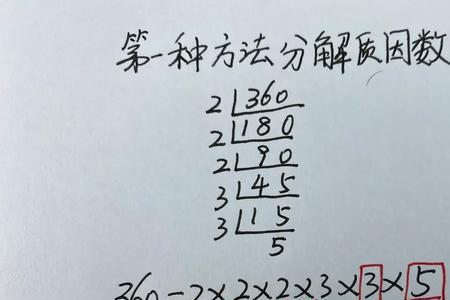 第一种方法分解质因数
2 360
2 180
2 90
3 45
3 15
5
360=2×2×2×3×3×5